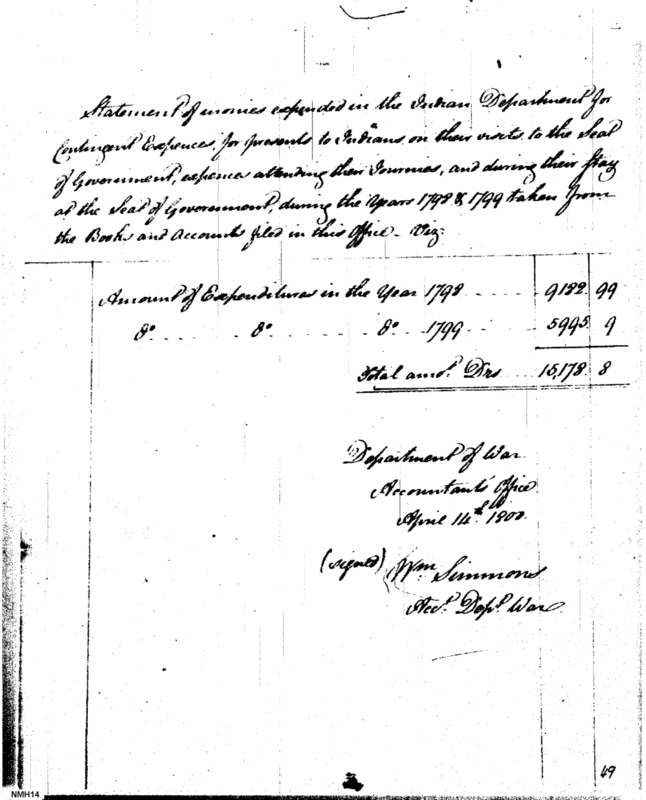 Statement of monies expended in the Indian Department for
Contingent Expences, for presents to Indians on their visits to the Seat
of Government, expences attending their Journies, and during their Stay
at the Seat of Government, during the Years 1798 & 1799 taken from
the Books and Accounts filed in this Office - Viz:
Amount of Expenditures in the Year 1798 9182 99
Do Do Do 1799 5995 9
Total amot. Drs 15,178 8
Department of War
Accountants Office
April 14th 1800
(signed) Wm Simmons
Acct. Dept. War
49
NMH14